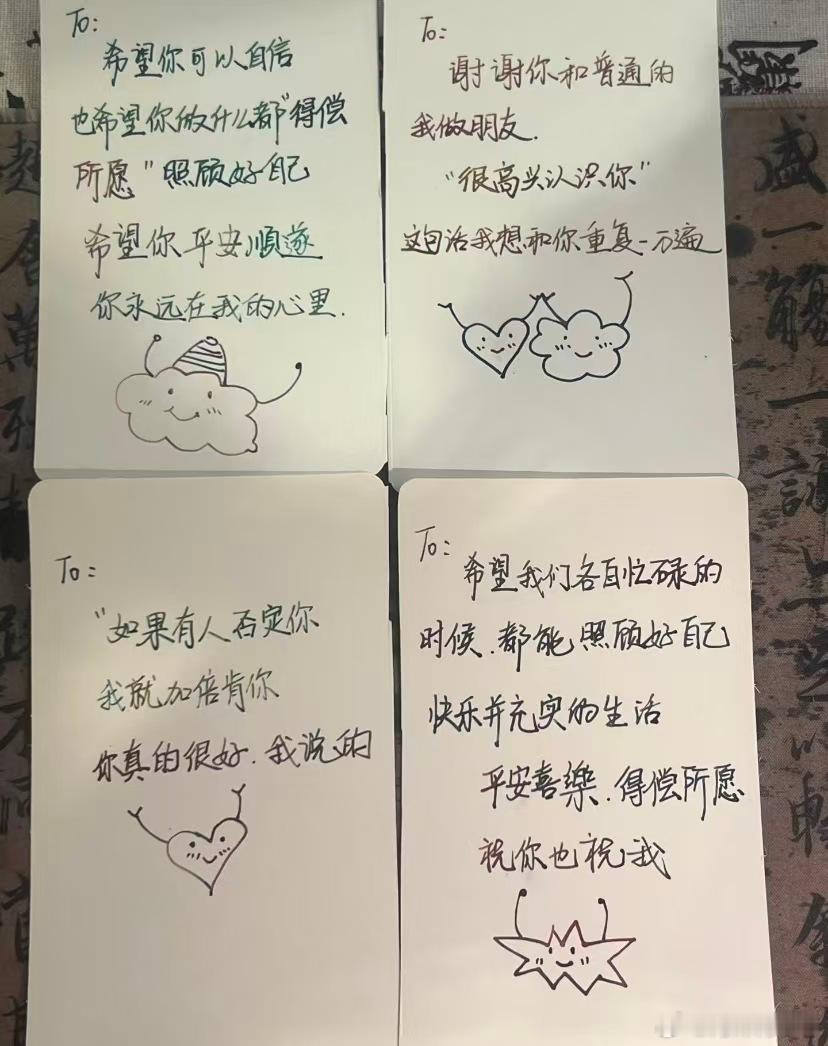 To:
希望你可以自信
也希望你做什么都“得偿
所愿”照顾好自己
希望你平安順遂
你永远在我的心里.
To:
谢谢你和普通的
我做朋友.
“很高兴认识你”
这句话我想和你重复一万遍
To:
“如果有人否定你
我就加倍肯你
你真的很好.我说的
To:
希望我们各自忙碌的
时候.都能照顾好自己
快乐并充实的生活
平安喜樂.得偿所愿
祝你也祝我
盛
一
觴
一
詠